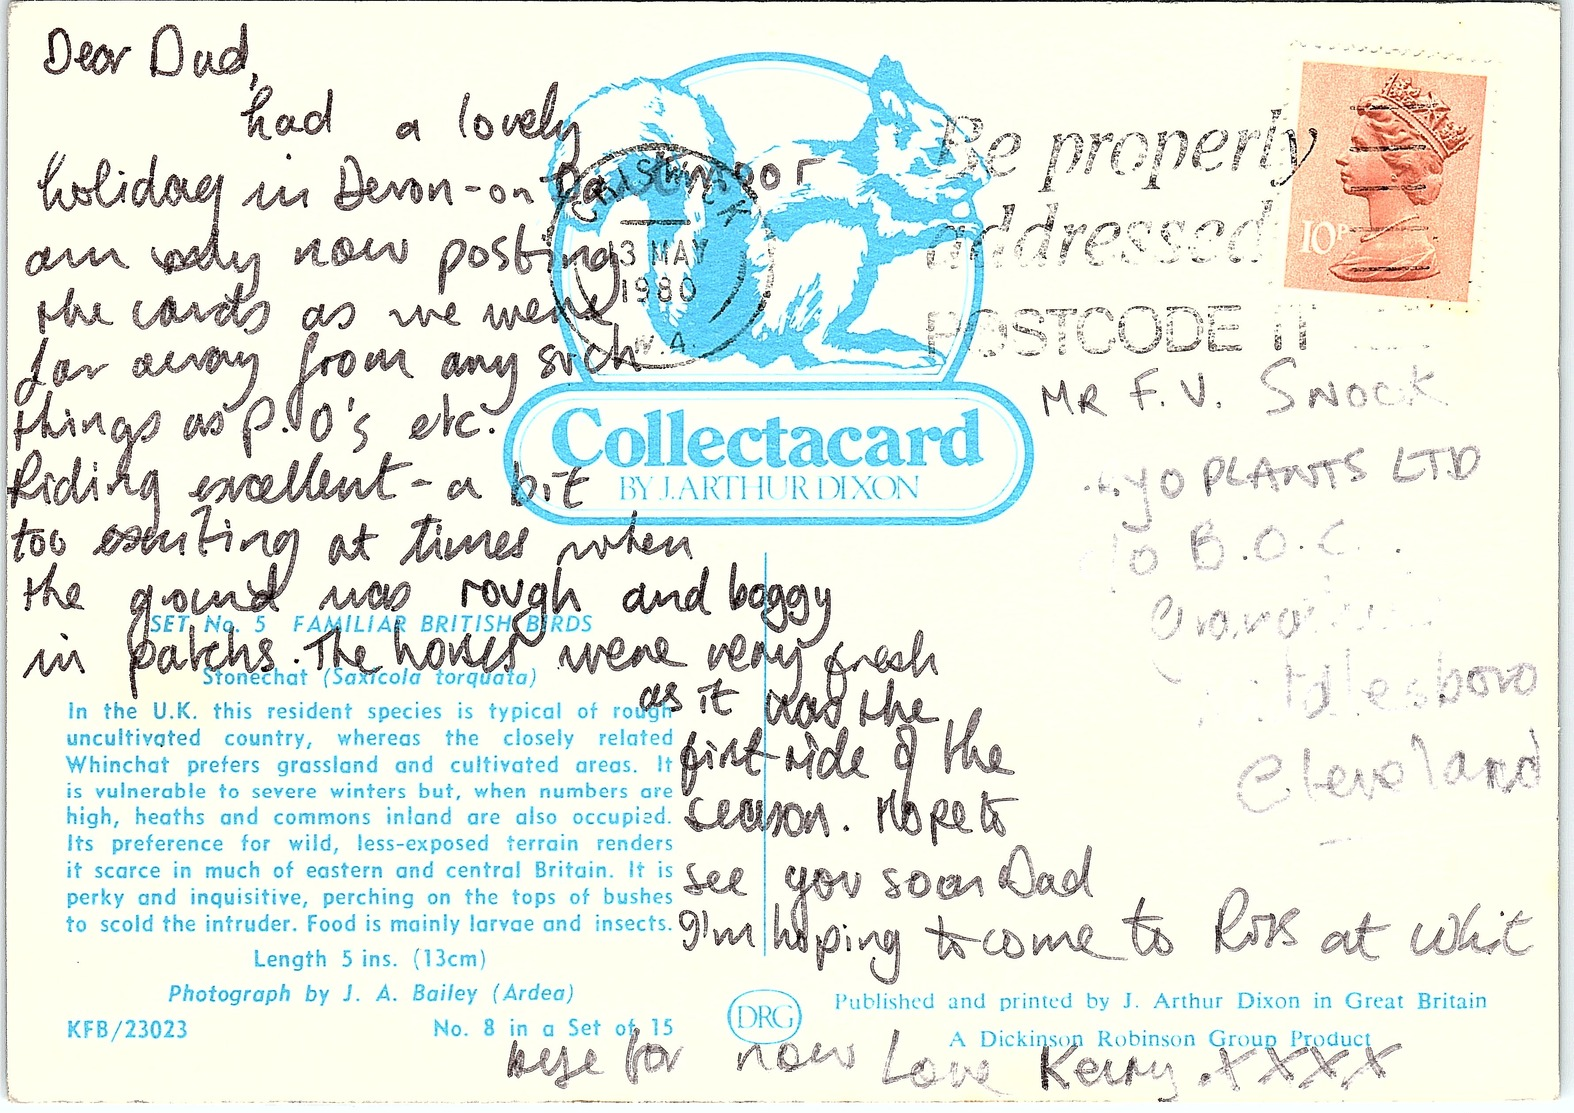 Dear Dad,
had a lovely
holiday in Devon-on Dartmoor
am only now posting
the cards as we were
far away from any such
things as P.O's etc.
Riding excellent - a bit
too exciting at times when
the ground was rough and boggy
in patchs. The horses were very fresh
as it was the
first ride of the
season. Hope to
see you soon Dad
I'm hoping to come to Ross at Whit
bye for now Love Kerry.XXXX
CHISWICK
13 MAY
1980
W.4.
Be properly
addressed
POSTCODE IT
10P
MR F.V. SNOCK
CRYOPLANTS LTD
c/o B.O.C.
Middlesboro
Cleveland
Collectacard
BY J. ARTHUR DIXON
SET No. 5 FAMILIAR BRITISH BIRDS
Stonechat (Saxicola torquata)
In the U.K. this resident species is typical of rough
uncultivated country, whereas the closely related
Whinchat prefers grassland and cultivated areas. It
is vulnerable to severe winters but, when numbers are
high, heaths and commons inland are also occupied.
Its preference for wild, less-exposed terrain renders
it scarce in much of eastern and central Britain. It is
perky and inquisitive, perching on the tops of bushes
to scold the intruder. Food is mainly larvae and insects.
Length 5 ins. (13cm)
Photograph by J. A. Bailey (Ardea)
KFB/23023
No. 8 in a Set of 15
DRG
Published and printed by J. Arthur Dixon in Great Britain
A Dickinson Robinson Group Product